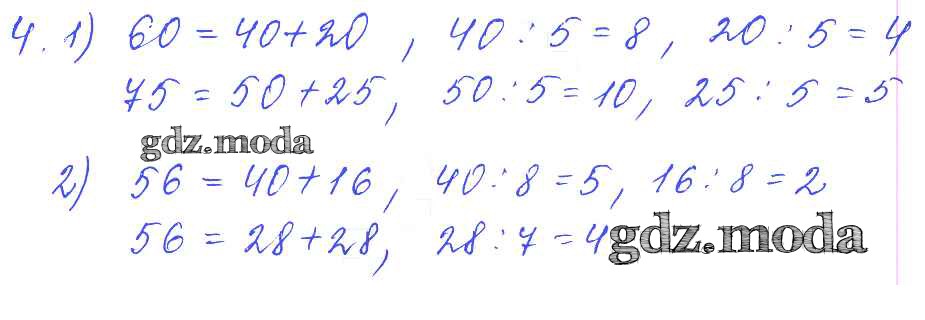 4. 1) 60 = 40+20 , 40 : 5 = 8 , 20 : 5 = 4
75 = 50+25, 50 : 5 = 10, 25 : 5 = 5
gdz.moda
2) 56 = 40+16 , 40 : 8 = 5, 16 : 8 = 2
56 = 28+28, 28 : 7 = 4
gdz.moda